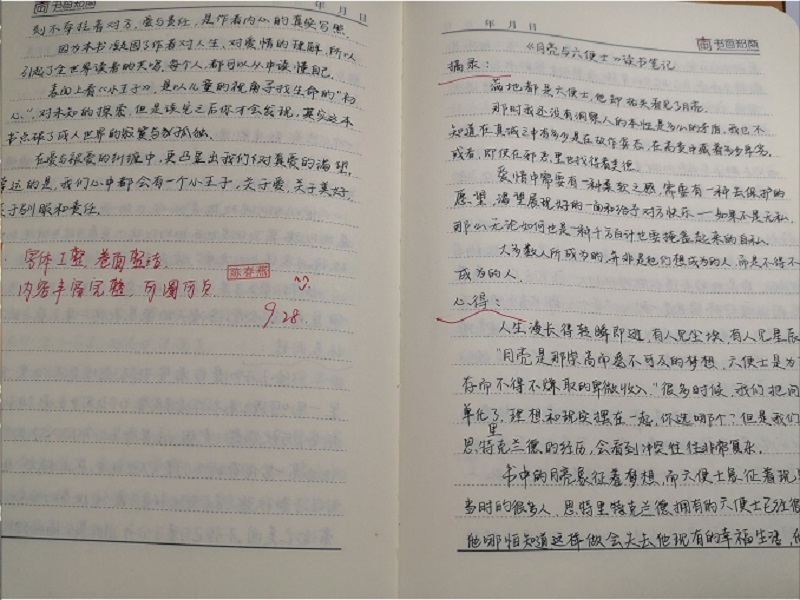 年 月 日
则不存在着对方,爱与责任,是作者内心的真实写照
因为本书凝固了作者对人生、对爱情的理解,所以
引起了全世界读者的共鸣,每个人都可以从中读懂自己。
表面上看《小王子》,是以儿童的视角寻找生命的"初
心",对未知的探索,但是读完之后你才会发现,其实这本
书点破了成人世界的寂寞与孤独。
在爱与被爱的折磨中,更凸显出我们对真爱的渴望,
幸运的是,我们心中都会有一个小王子,关于爱,关于美好,
关于驯服和责任。
字体工整,卷面整洁,
内容丰富完整,可圈可点
陈春燕
9.28
年 月 日
《月亮与六便士》读书笔记
摘录:
满地都是六便士,他却抬头看见了月亮。
那时我还没有洞察人的本性是多么的矛盾,我也不
知道在真诚之中有多少是在故作姿态,在高贵中藏着多少卑劣,
或者,即便在邪恶里也找得着美德
爱情中需要有一种柔软之感,需要有一种去保护的
愿望,渴望展现好的一面和给予对方快乐——如果不是无私,
那么无论如何也是一种千方百计也要掩盖起来的自私。
大多数人所成为的,并非是他们想成为的人,而是不得不
成为的人。
心得:
人生漫长得转瞬即逝,有人见尘埃,有人见星辰
"月亮是那崇高而遥不可及的梦想,六便士是为了
存而不得不赚取的卑微收入,"很多时候,我们把问
单化了,理想和现实摆在一起,你选哪个?但是我们
思特里克兰德的经历,会看到冲突往往非常复杂。
书中的月亮象征着梦想,而六便士象征着现
当时的很多人,思特里特克兰德拥有的六便士已经很
他哪怕知道这样做会失去他现有的幸福生活,他